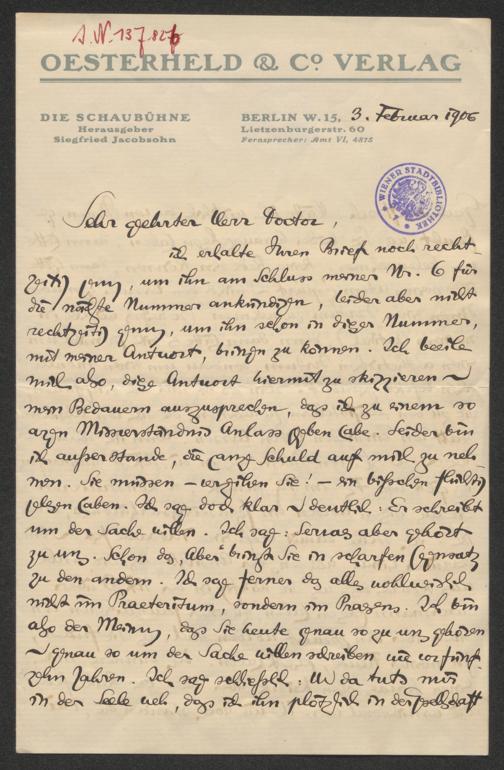 J. N. 137.826
OESTERHELD & Co VERLAG
DIE SCHAUBÜHNE
Herausgeber
Siegfried Jacobsohn
BERLIN W. 15, 3. Februar 1906
Lietzenburgerstr. 60
Fernsprecher: Amt VI, 4815
WIENER STADTBIBLIOTHEK
Sehr geehrter Herr Doctor,
ich erhalte Ihren Brief noch recht-
zeitig genug, um ihn am Schluss meiner Nr. 6 für
die nächste Nummer ankündigen, leider aber nicht
rechtzeitig genug, um ihn schon in dieser Nummer,
mit meiner Antwort, bringen zu können. Ich beeile
mich also, diese Antwort hiermit zu skizzieren u
mein Bedauern auszusprechen, dass ich zu einem so
argen Missverständnis Anlass gegeben habe. Leider bin
ich ausserstande, die ganze Schuld auf mich zu neh-
men. Sie müssen – verzeihen Sie! – ein bisschen flüchtig
gelesen haben. Ich sage doch klar u deutlich: Er schreibt
um der Sache willen. Ich sage: Servaes aber gehört
zu uns. Schon das „Aber" bringt Sie in scharfen Gegensatz
zu den andern. Ich sage ferner das alles wohlweislich
nicht im Praeteritum, sondern im Praesens. Ich bin
also der Meinung, dass Sie heute genau so zu uns gehören
u genau so um der Sache willen schreiben wie vor fünf-
zehn Jahren. Ich sage schliesslich: Und da tuts mir
in der Seele weh, dass ich ihn plötzlich in der Gesellschaft